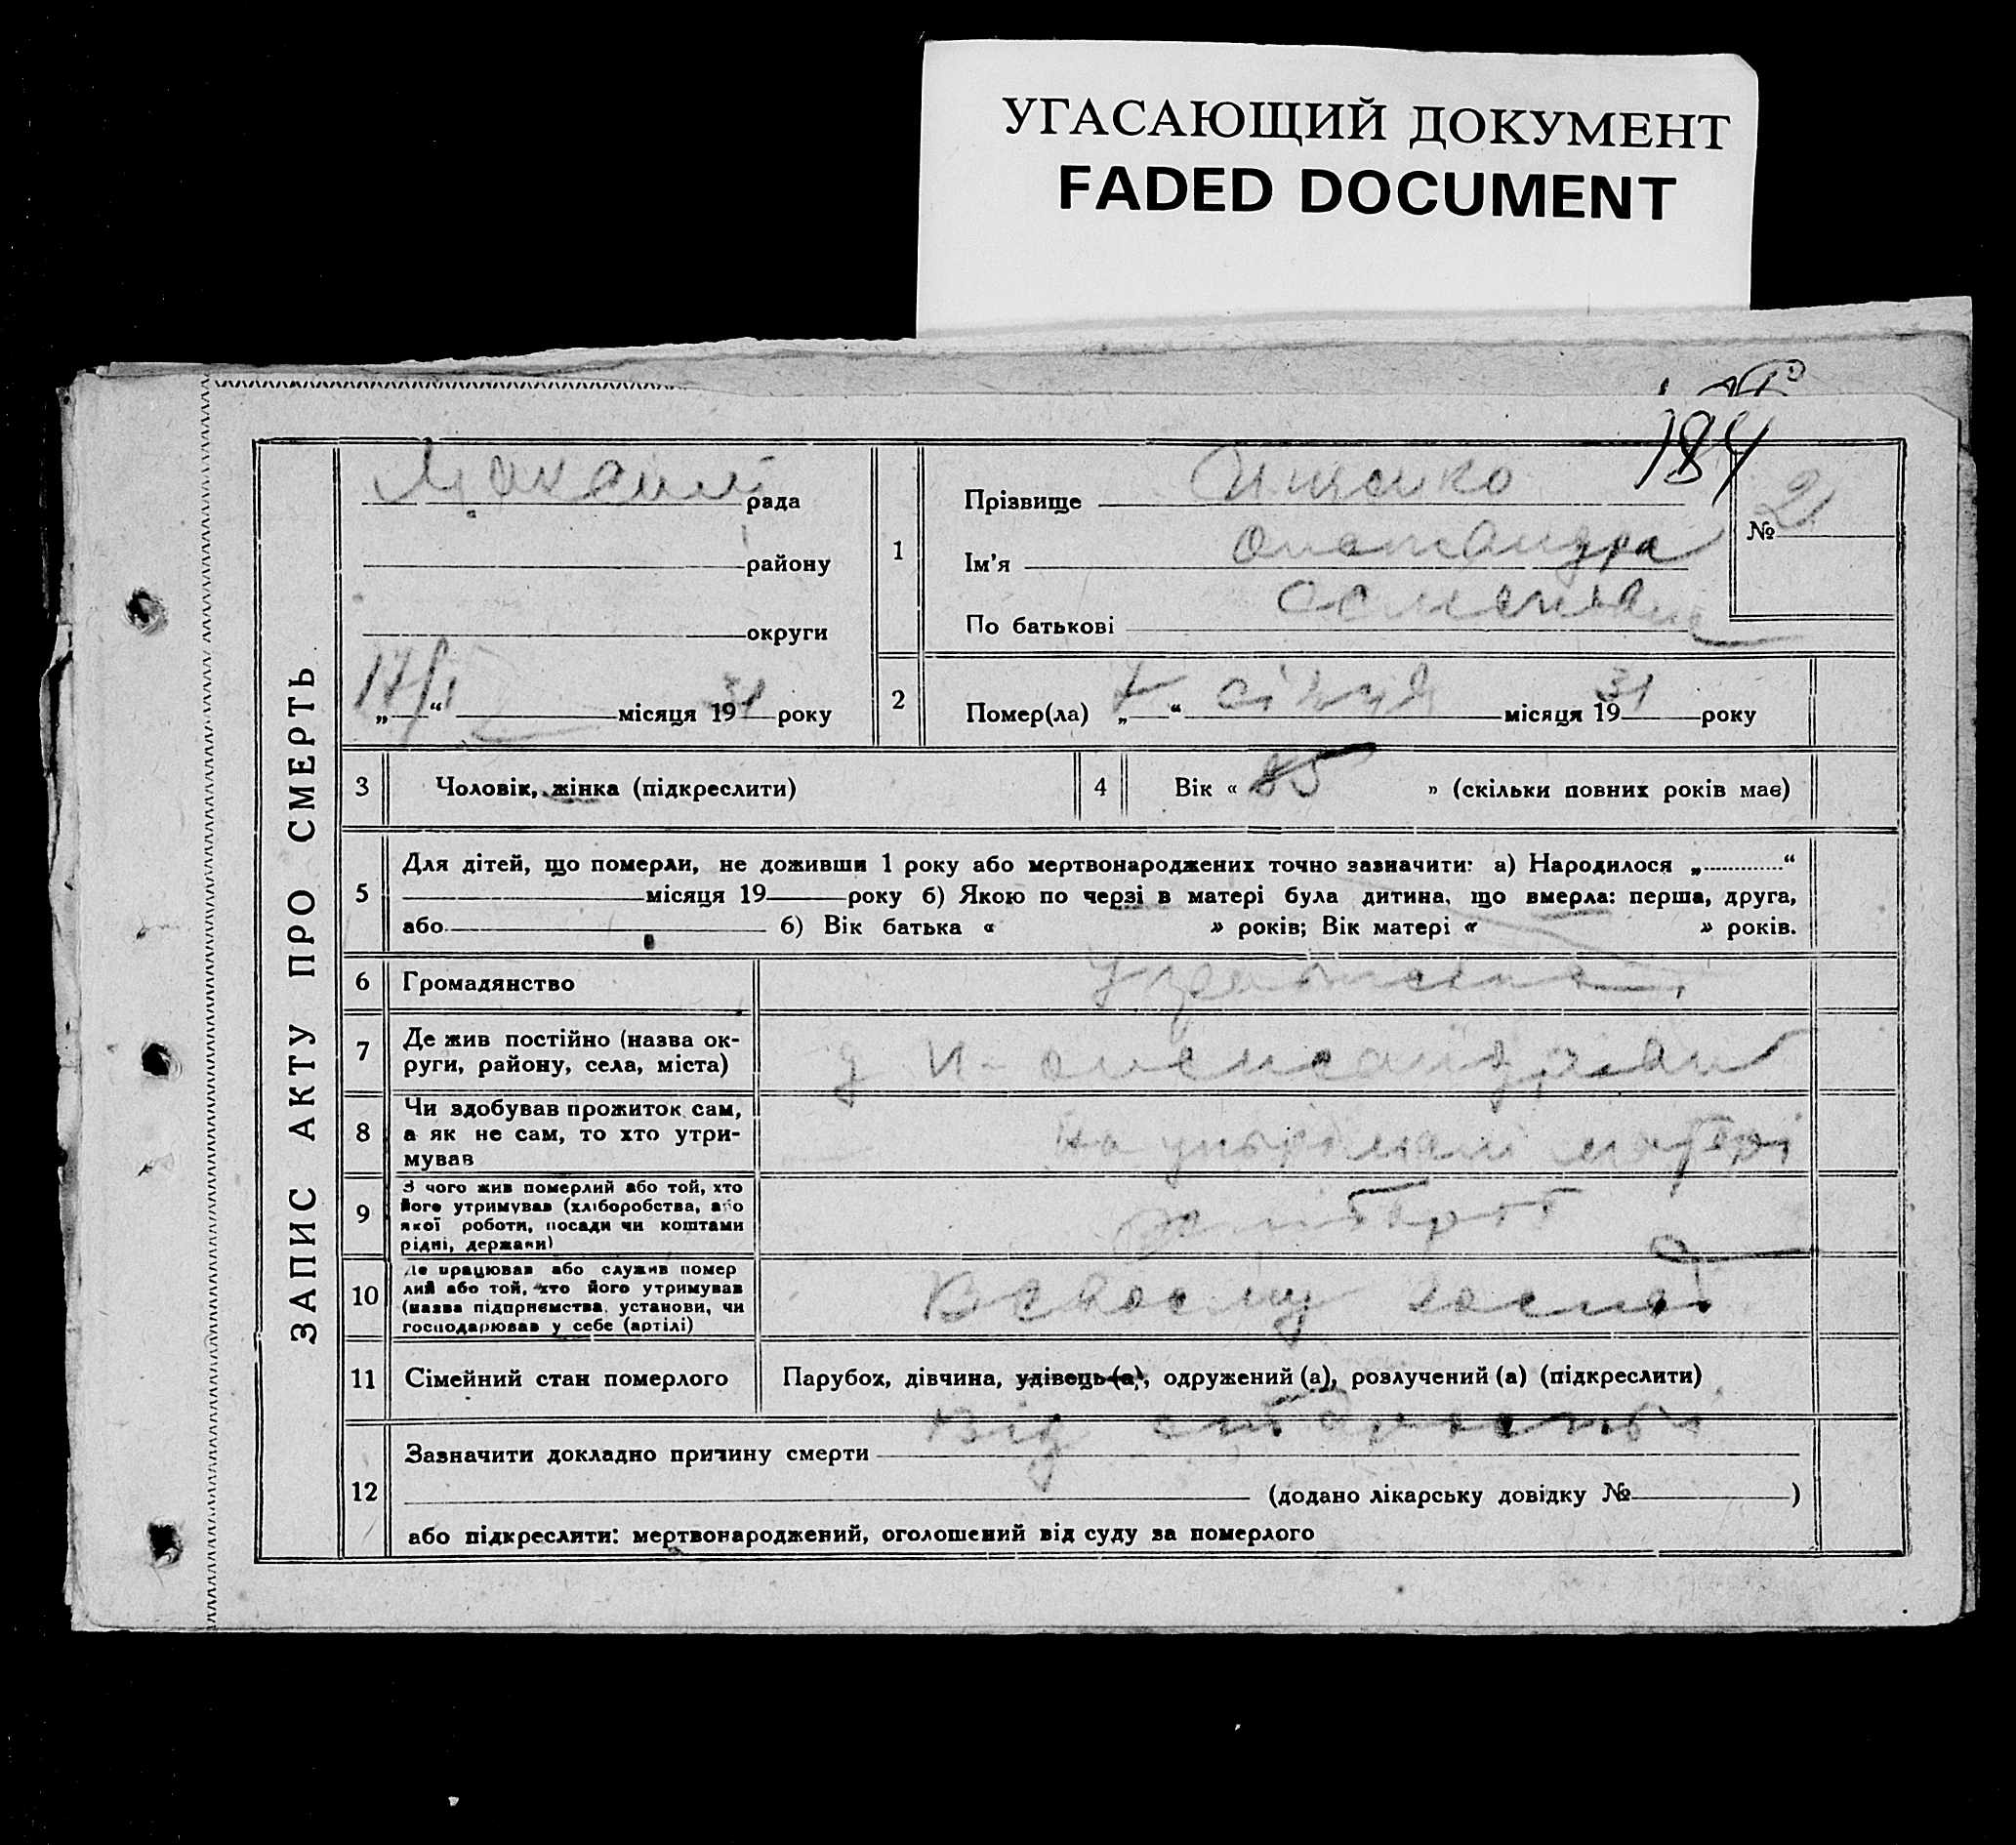 УГАСАЮЩИЙ ДОКУМЕНТ
FADED DOCUMENT
184
ЗАПИС АКТУ ПРО СМЕРТЬ
рада
району
округи
17/I
„ “ місяця 1931 року
1
Прізвище Ищенко
Ім'я
По батькові
№ 2
2
Помер(ла) „ “ місяця 1931 року
3
Чоловік, жінка (підкреслити)
4
Вік « 85 » (скільки повних років має)
5
Для дітей, що померли, не доживши 1 року або мертвонароджених точно зазначити: а) Народилося „ “
місяця 19 року б) Якою по черзі в матері була дитина, що вмерла: перша, друга,
або б) Вік батька « » років; Вік матері « » років.
6
Громадянство
7
Де жив постійно (назва ок-
руги, району, села, міста)
8
Чи здобував прожиток сам,
а як не сам, то хто утри-
мував
9
З чого жив померлий або той, хто
його утримував (хліборобства, або
якої роботи, посади чи коштами
рідні, держави)
10
Де працював або служив помер
лий або той, хто його утримував
(назва підприємства, установи, чи
господарював у себе (артілі)
В своєму
11
Сімейний стан померлого
Парубок, дівчина, удівець (а), одружений (а), розлучений (а) (підкреслити)
12
Від
Зазначити докладно причину смерти
(додано лікарську довідку № )
або підкреслити: мертвонароджений, оголошений від суду за померлого